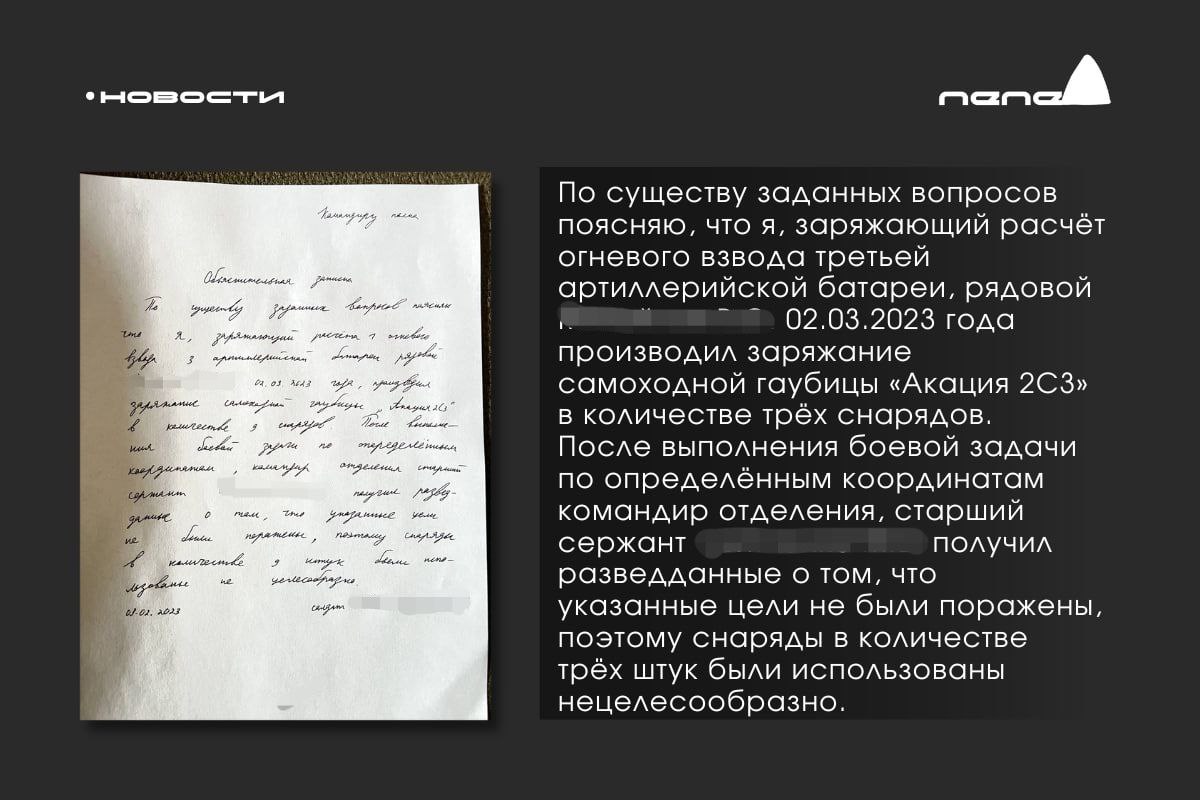 •НОВОСТИ
пепел
Командиру полка
Объяснительная записка
По существу заданных вопросов поясняю
что я, заряжающий расчёта 1 огневого
взвода 3 артиллерийской батареи рядовой
02.03.2023 года, производил
заряжание самоходной гаубицы „Акация 2С3"
в количестве 3 снарядов После выполне-
ния боевой задачи по определённым
координатам, командир отделения старший
сержант получил развед-
данные о том, что указанные цели
не были поражены, поэтому снаряды
в количестве 3 штук были испо-
льзованы не целесообразно.
03.02.2023 солдат
По существу заданных вопросов
поясняю, что я, заряжающий расчёт
огневого взвода третьей
артиллерийской батареи, рядовой
02.03.2023 года
производил заряжание
самоходной гаубицы «Акация 2С3»
в количестве трёх снарядов.
После выполнения боевой задачи
по определённым координатам
командир отделения, старший
сержант получил
разведданные о том, что
указанные цели не были поражены,
поэтому снаряды в количестве
трёх штук были использованы
нецелесообразно.